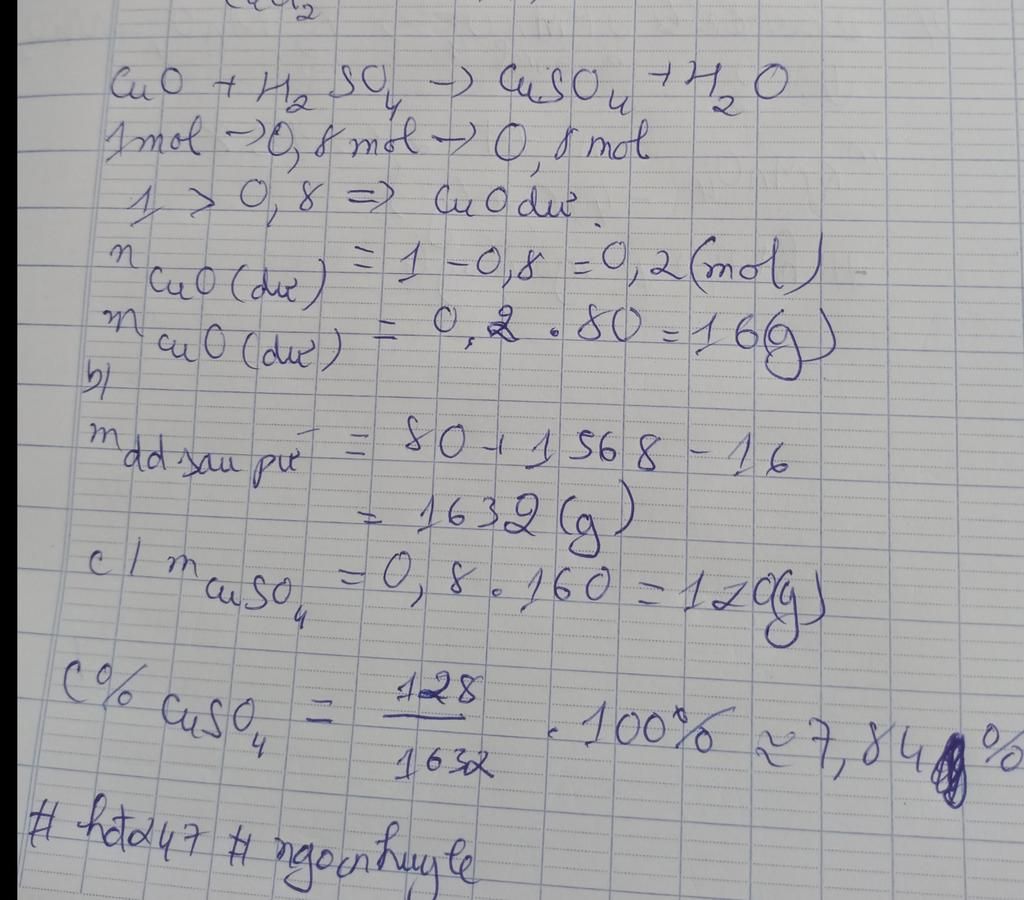 CuO + H2SO4 → CuSO4 + H2O
1mol → 0,8mol → 0,8mol
1 > 0,8 => CuO dư.
nCuO (dư) = 1 - 0,8 = 0,2 (mol)
mCuO (dư) = 0,2 . 80 = 16(g)
b)
mdd sau pư = 80 + 1568 - 16
= 1632 (g)
c/ mCuSO4 = 0,8 . 160 = 120(g)
C% CuSO4 = 128/1632 . 100% ≈ 7,84%
# hđ247 # ngocnhuyle